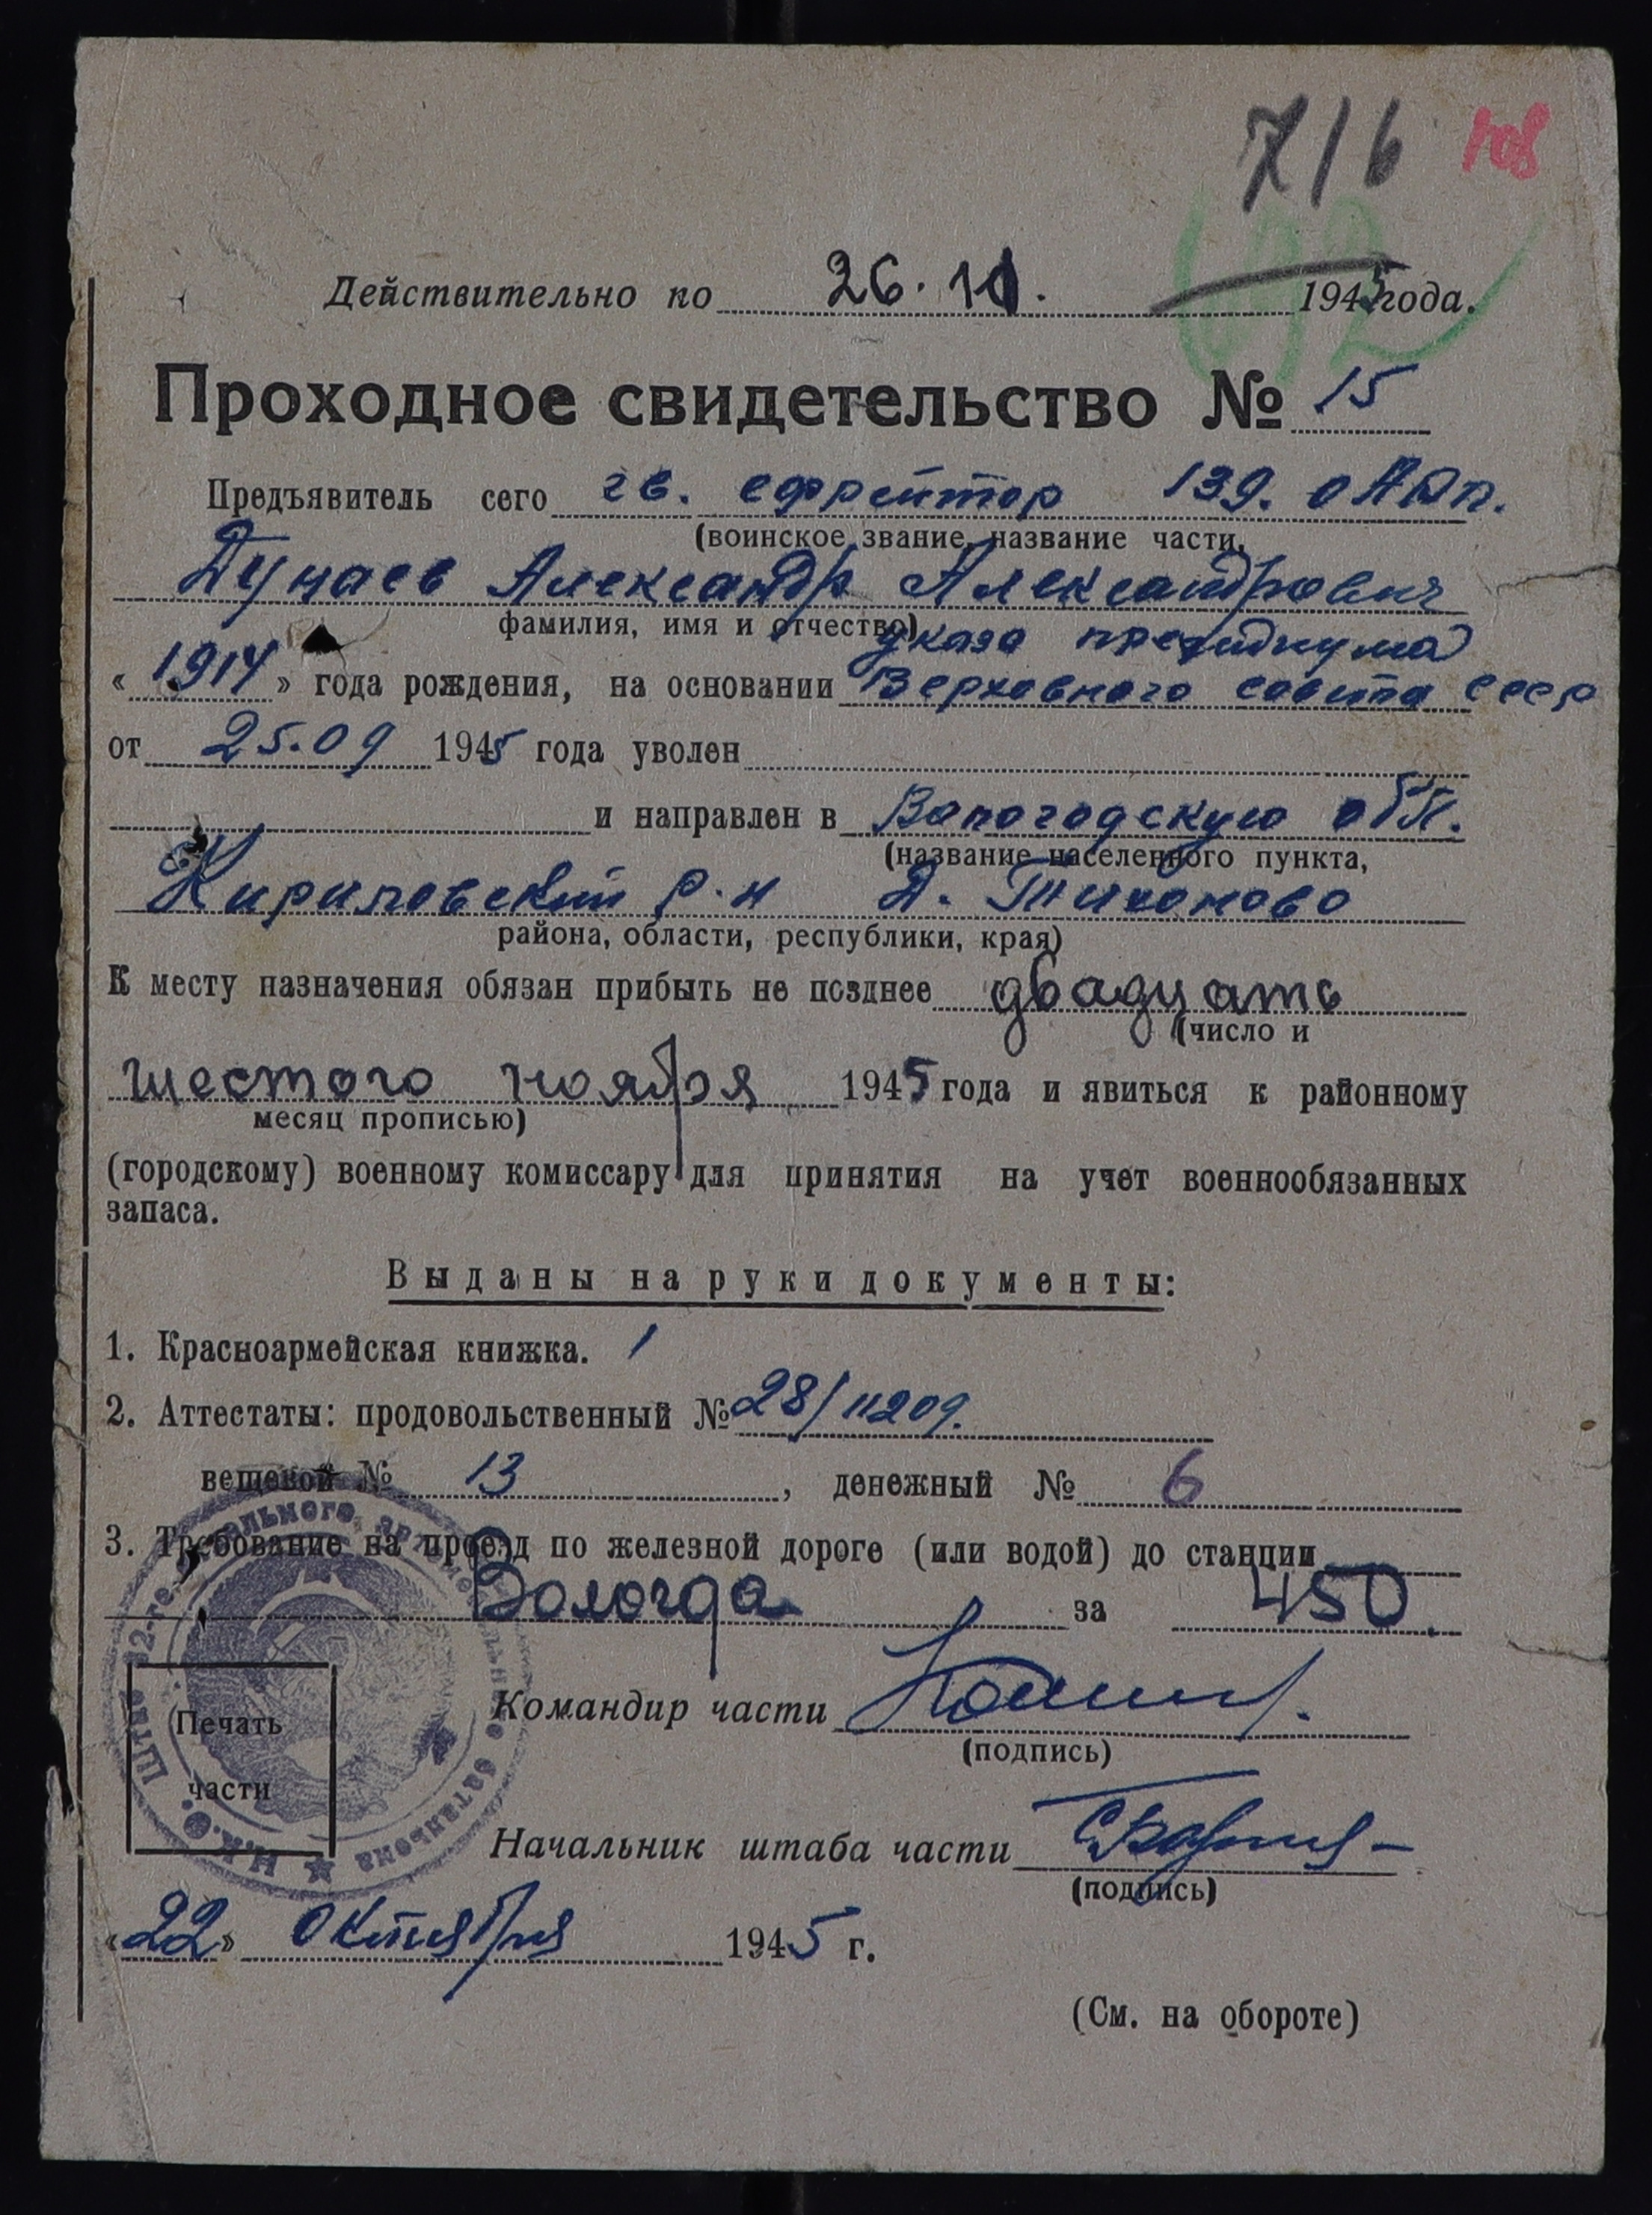 716 108
692
Действительно по 26.11. 1945 года.
Проходное свидетельство № 15
Предъявитель сего гв. ефрейтор 139.
(воинское звание, название части,
Дунаев Александр Александрович
фамилия, имя и отчество)
указа президиума
«1914» года рождения, на основании Верховного совета СССР
от 25.09 1945 года уволен
и направлен в Вологодскую обл.
(название населенного пункта,
Кириловский р-н д. Тихоново
района, области, республики, края)
К месту назначения обязан прибыть не позднее двадцать
(число и
шестого ноября 1945 года и явиться к районному
месяц прописью)
(городскому) военному комиссару для принятия на учет военнообязанных
запаса.
Выданы на руки документы:
1. Красноармейская книжка. 1
2. Аттестаты: продовольственный № 28/11209.
вещевой № 13, денежный № 6
3. Требование на проезд по железной дороге (или водой) до станции
Вологда за 450
Печать
части
Штаб батальона ★ Н.К.О.
Командир части
(подпись)
Начальник штаба части
(подпись)
«22» октября 1945 г.
(См. на обороте)